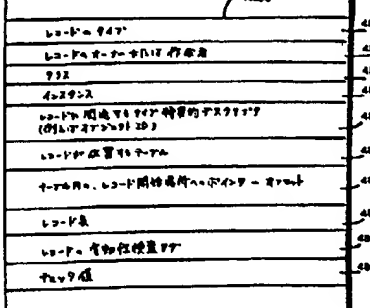 レコードのタイプ
レコードのオーナーまたは作成者
クラス
インスタンス
レコードに関連するタイプ特有的デスクリプタ
(例えばオブジェクトID)
レコードが位置するテーブル
テーブル内の、レコード開始場所へのポインター オフセット
レコード長
レコードの
チェック値